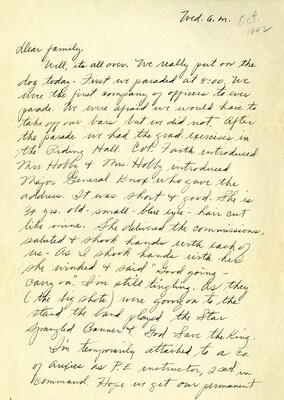 Wed. a.m. Oct.
1942
Dear family,
Well, its all over. We really put on the
dog today. First we paraded at 8:00. We
were the first company of officers to ever
parade. We were afraid we would have to
take off our bars but we did not. After
the parade we had the grad. exercises in
the Riding Hall. Col. Faith introduced
Mrs Hobby & Mrs. Hobby introduced
Major General Knox who gave the
address. It was short & good. She is
34 yrs. old - small - blue eyes - hair cut
like mine. She delivered the commissions,
saluted & shook hands with each of
us - As I shook hands with her
she winked & said "Good going -
carry on. I'm still tingling. As they
(the big shots) were going on to the
stand the band played the Star
Spangled Banner & God Save the King.
I'm temporarily attached to a co.
of auxies as P.E. instructor, 2nd in
command. Hope we get our permanent